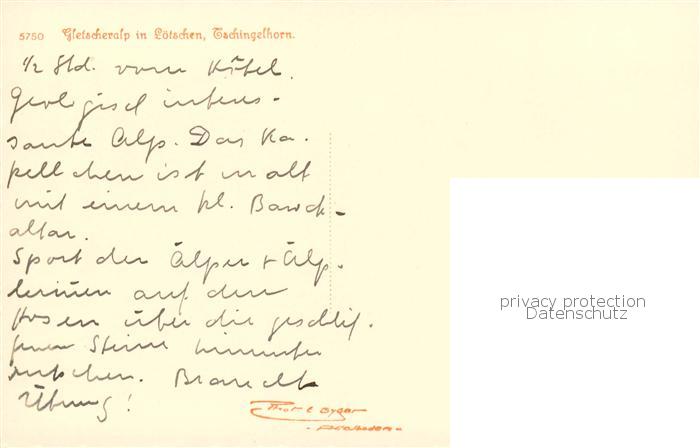 5750 Gletscheralp in Lötschen, Tschingelhorn.
1/2 Std. vom Hôtel.
Geologisch interes-
sante Alp. Das Ka-
pellchen ist uralt
mit einem kl. Barock-
altar.
Sport der Älper + Älp-
lerinnen auf den
Hosen über die geschlif-
fenen Steine hinunter
rutschen. Braucht
Übung!
Phot. E Gyger
Adelboden
privacy protection
Datenschutz